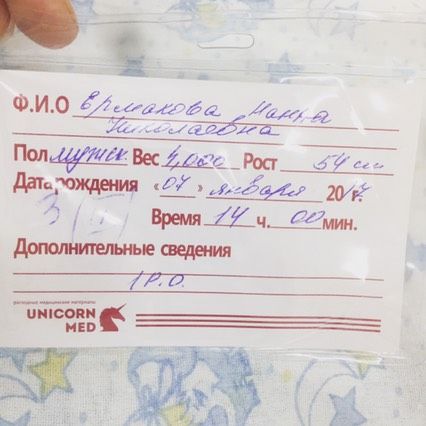 Ф.И.О Ермакова Нанна
Николаевна
Пол мужск Вес 4,000 Рост 54 см
Дата рождения «07» января 2017.
3 (II)
Время 14 ч. 00 мин.
Дополнительные сведения
1 Р.О.
расходные медицинские материалы
UNICORN
MED